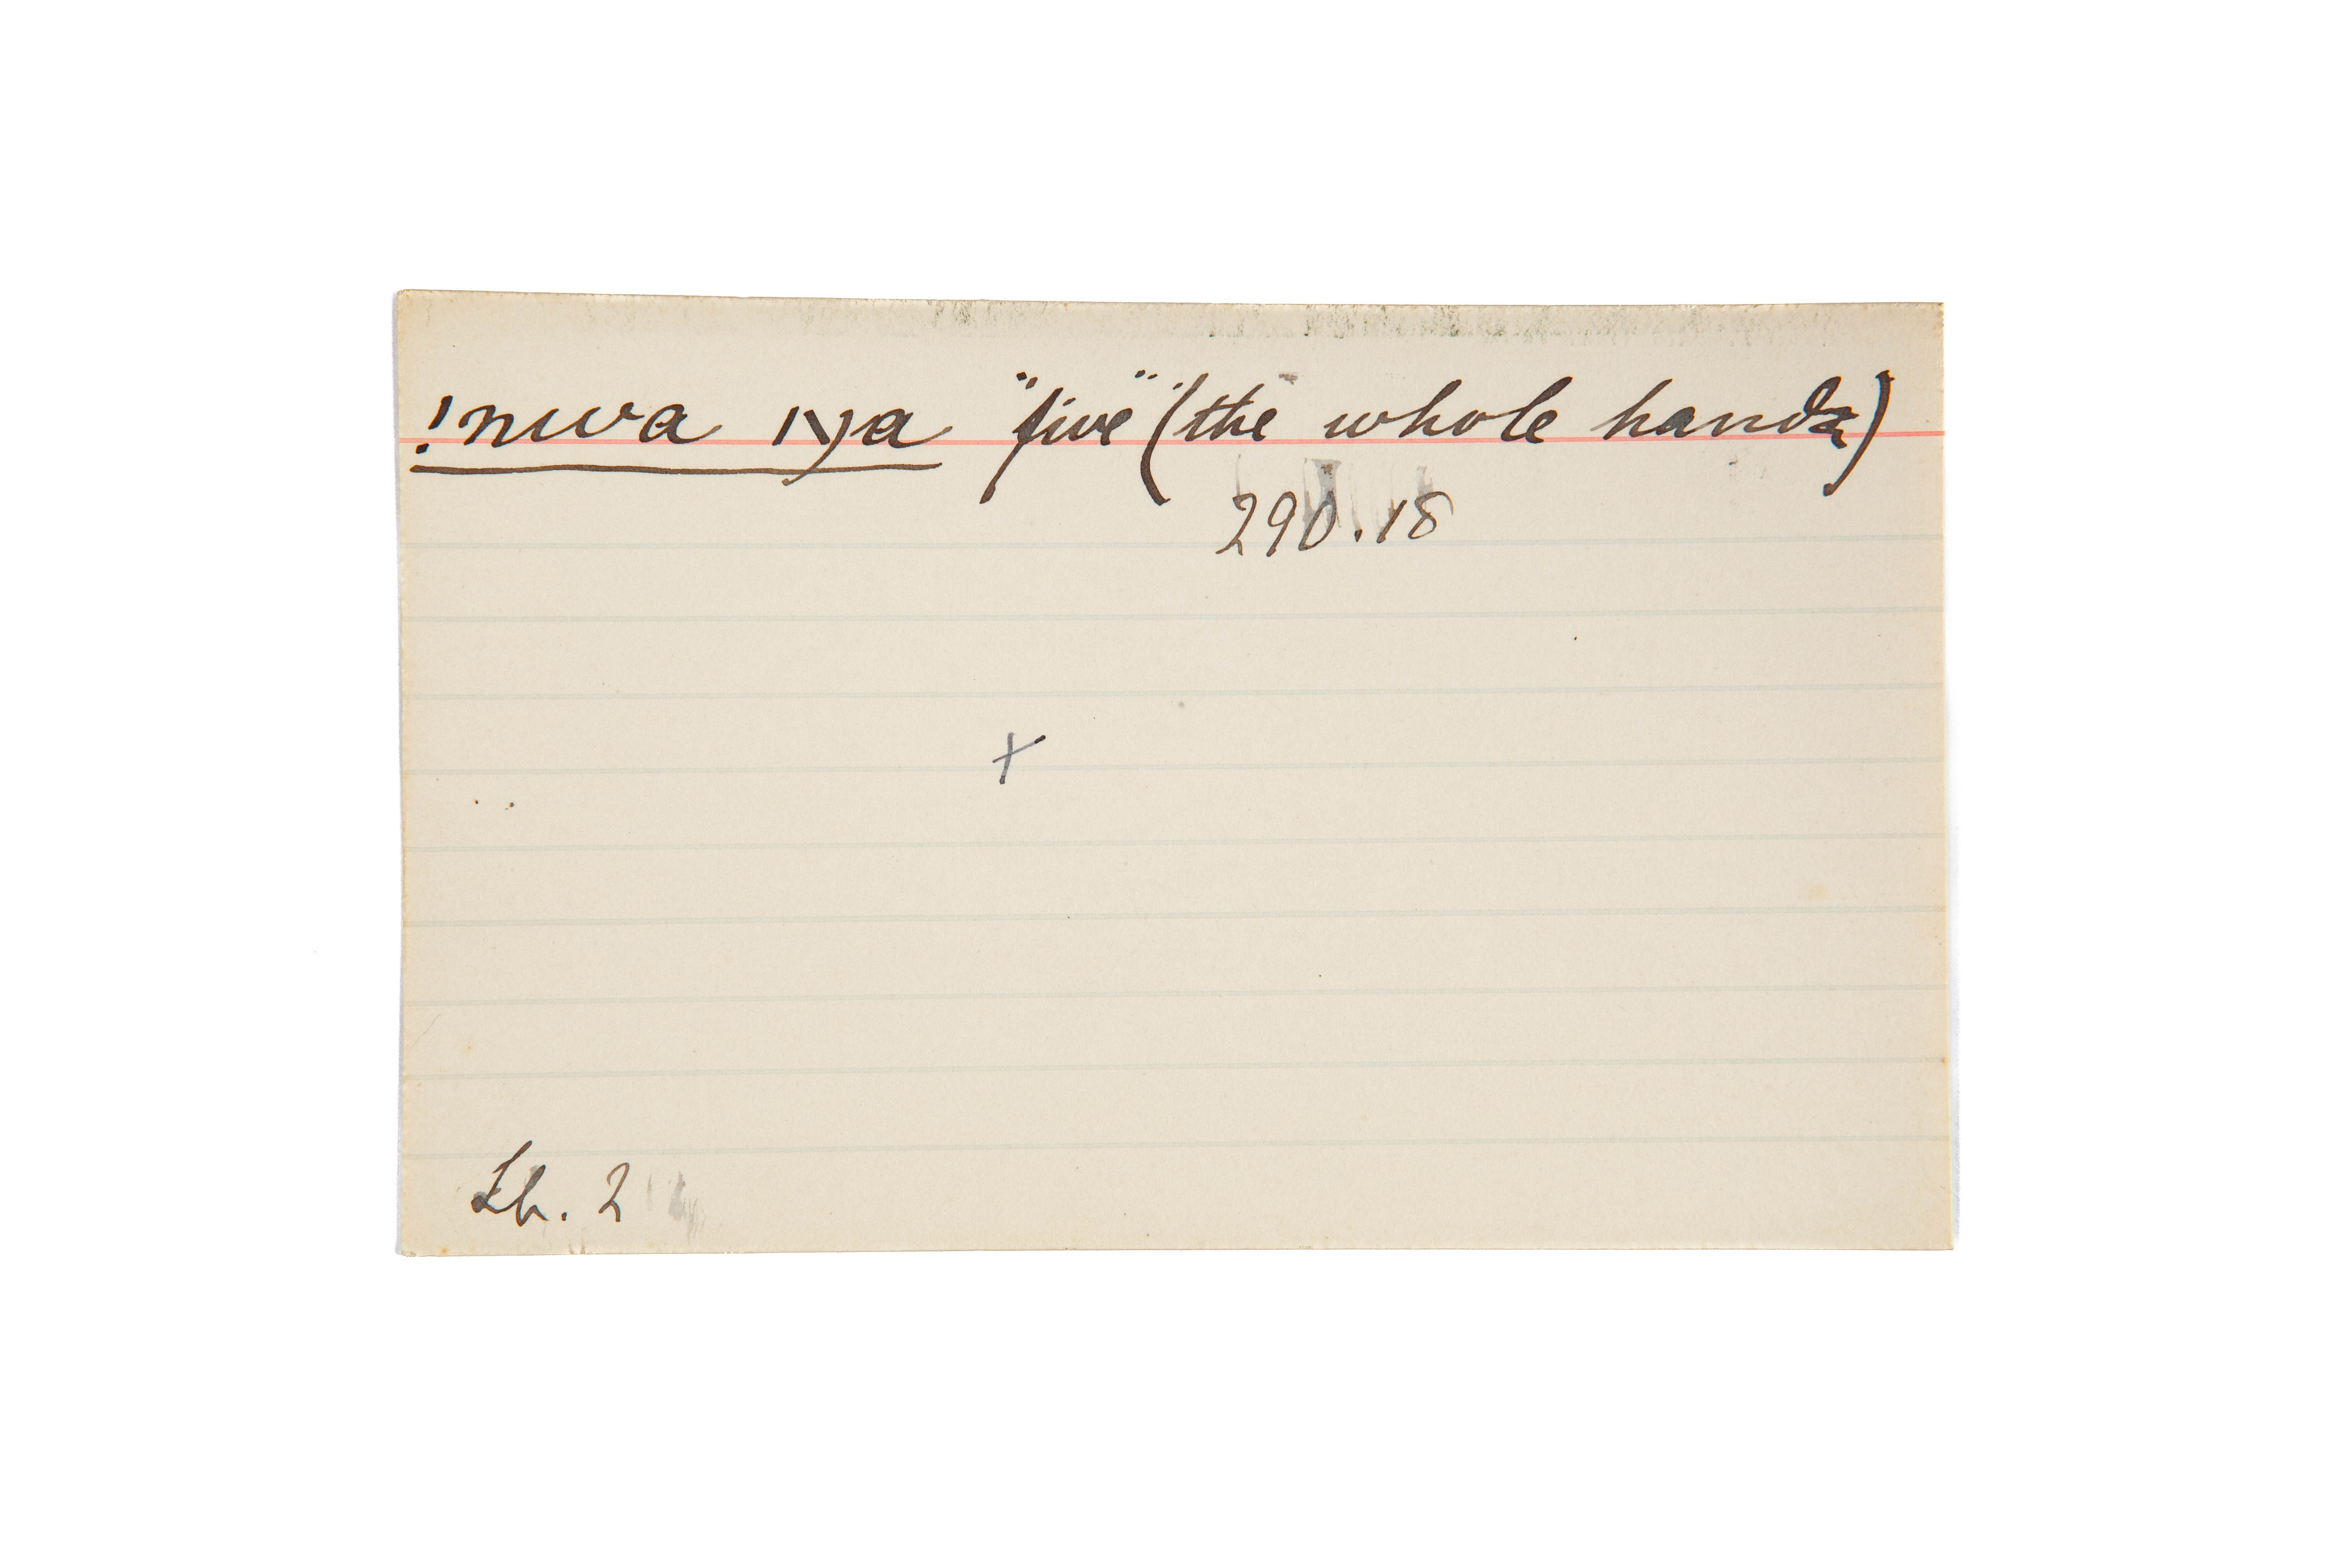 !nwa ıya "five" (the whole hand)
290.18
+
Lb. 2